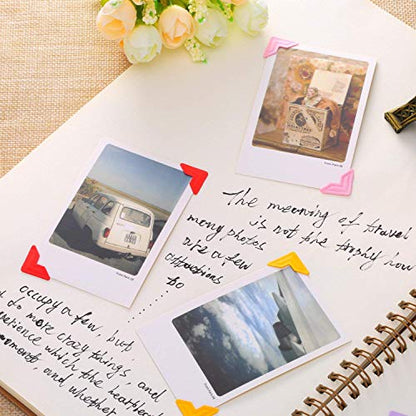 The meaning of travel
is not the trophy how
many photos
are a few
attractions
to
occupy a few, but
do more crazy things, and
perience which the heartbeat
oments, and whether